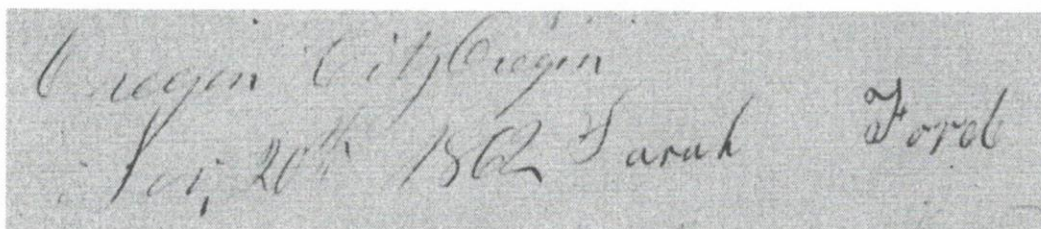 Oregon City Oregon
Nov, 20th 1862 Sarah Ford